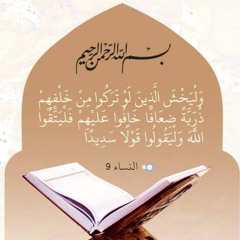 بسم الله الرحمن الرحيم
وَلْيَخْشَ الَّذِينَ لَوْ تَرَكُوا مِنْ خَلْفِهِمْ
ذُرِّيَّةً ضِعَافًا خَافُوا عَلَيْهِمْ فَلْيَتَّقُوا
اللَّهَ وَلْيَقُولُوا قَوْلًا سَدِيدًا
النساء 9